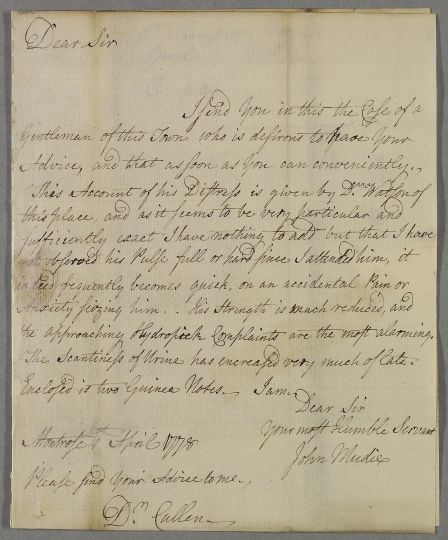 Dear Sir
I send You in this the Case of a
Gentleman of this Town who is desirous to have Your
Advice, and that as soon as You can conveniently.
This Account of his Distress is given by Dr. Watson of
this place, and as it seems to be very particular and
sufficiently exact I have nothing to add but that I have
not observed his Pulse full or hard since I attended him, it
indeed frequently becomes quick, on an accidental Pain or
Anxiety seizing him.. His Strength is much reduced, and
the approaching Hydropick Complaints are the most alarming.
The Scantiness of Urine has encreased very much of late.
Enclosed is two Guinea Notes. I am
Dear Sir
Your most Humble Servant
Montrose April 1778
John Mudie
Please send Your Advice to me.
Dr. Cullen